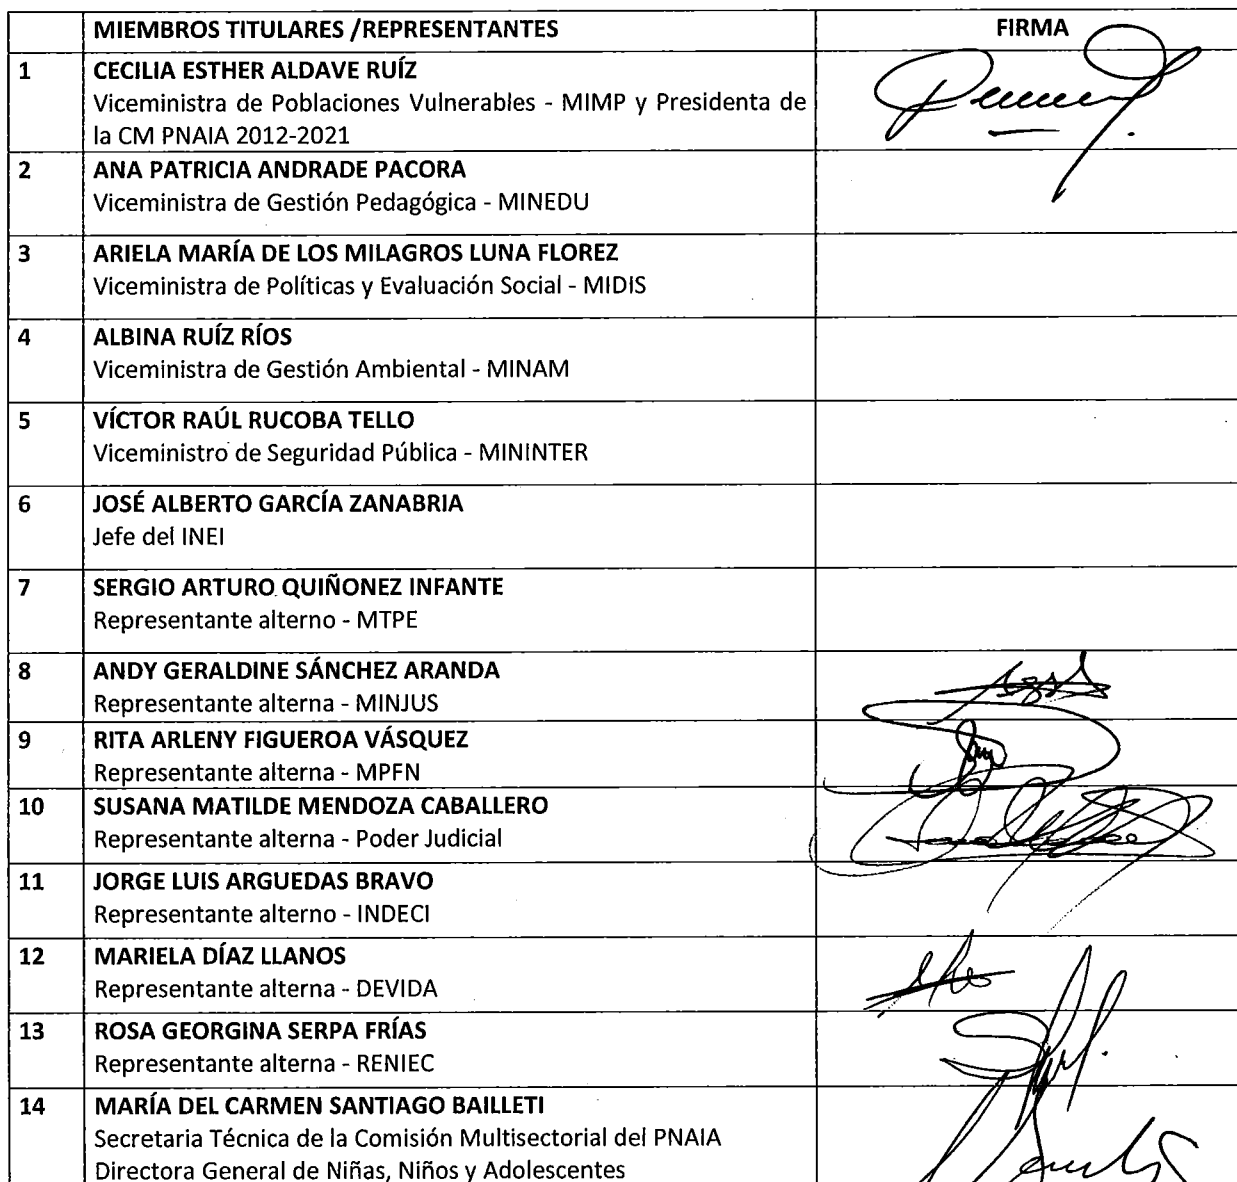 MIEMBROS TITULARES /REPRESENTANTES FIRMA
1 CECILIA ESTHER ALDAVE RUÍZ
Viceministra de Poblaciones Vulnerables - MIMP y Presidenta de
la CM PNAIA 2012-2021
2 ANA PATRICIA ANDRADE PACORA
Viceministra de Gestión Pedagógica - MINEDU
3 ARIELA MARÍA DE LOS MILAGROS LUNA FLOREZ
Viceministra de Políticas y Evaluación Social - MIDIS
4 ALBINA RUÍZ RÍOS
Viceministra de Gestión Ambiental - MINAM
5 VÍCTOR RAÚL RUCOBA TELLO
Viceministro de Seguridad Pública - MININTER
6 JOSÉ ALBERTO GARCÍA ZANABRIA
Jefe del INEI
7 SERGIO ARTURO QUIÑONEZ INFANTE
Representante alterno - MTPE
8 ANDY GERALDINE SÁNCHEZ ARANDA
Representante alterna - MINJUS
9 RITA ARLENY FIGUEROA VÁSQUEZ
Representante alterna - MPFN
10 SUSANA MATILDE MENDOZA CABALLERO
Representante alterna - Poder Judicial
11 JORGE LUIS ARGUEDAS BRAVO
Representante alterno - INDECI
12 MARIELA DÍAZ LLANOS
Representante alterna - DEVIDA
13 ROSA GEORGINA SERPA FRÍAS
Representante alterna - RENIEC
14 MARÍA DEL CARMEN SANTIAGO BAILLETI
Secretaria Técnica de la Comisión Multisectorial del PNAIA
Directora General de Niñas, Niños y Adolescentes